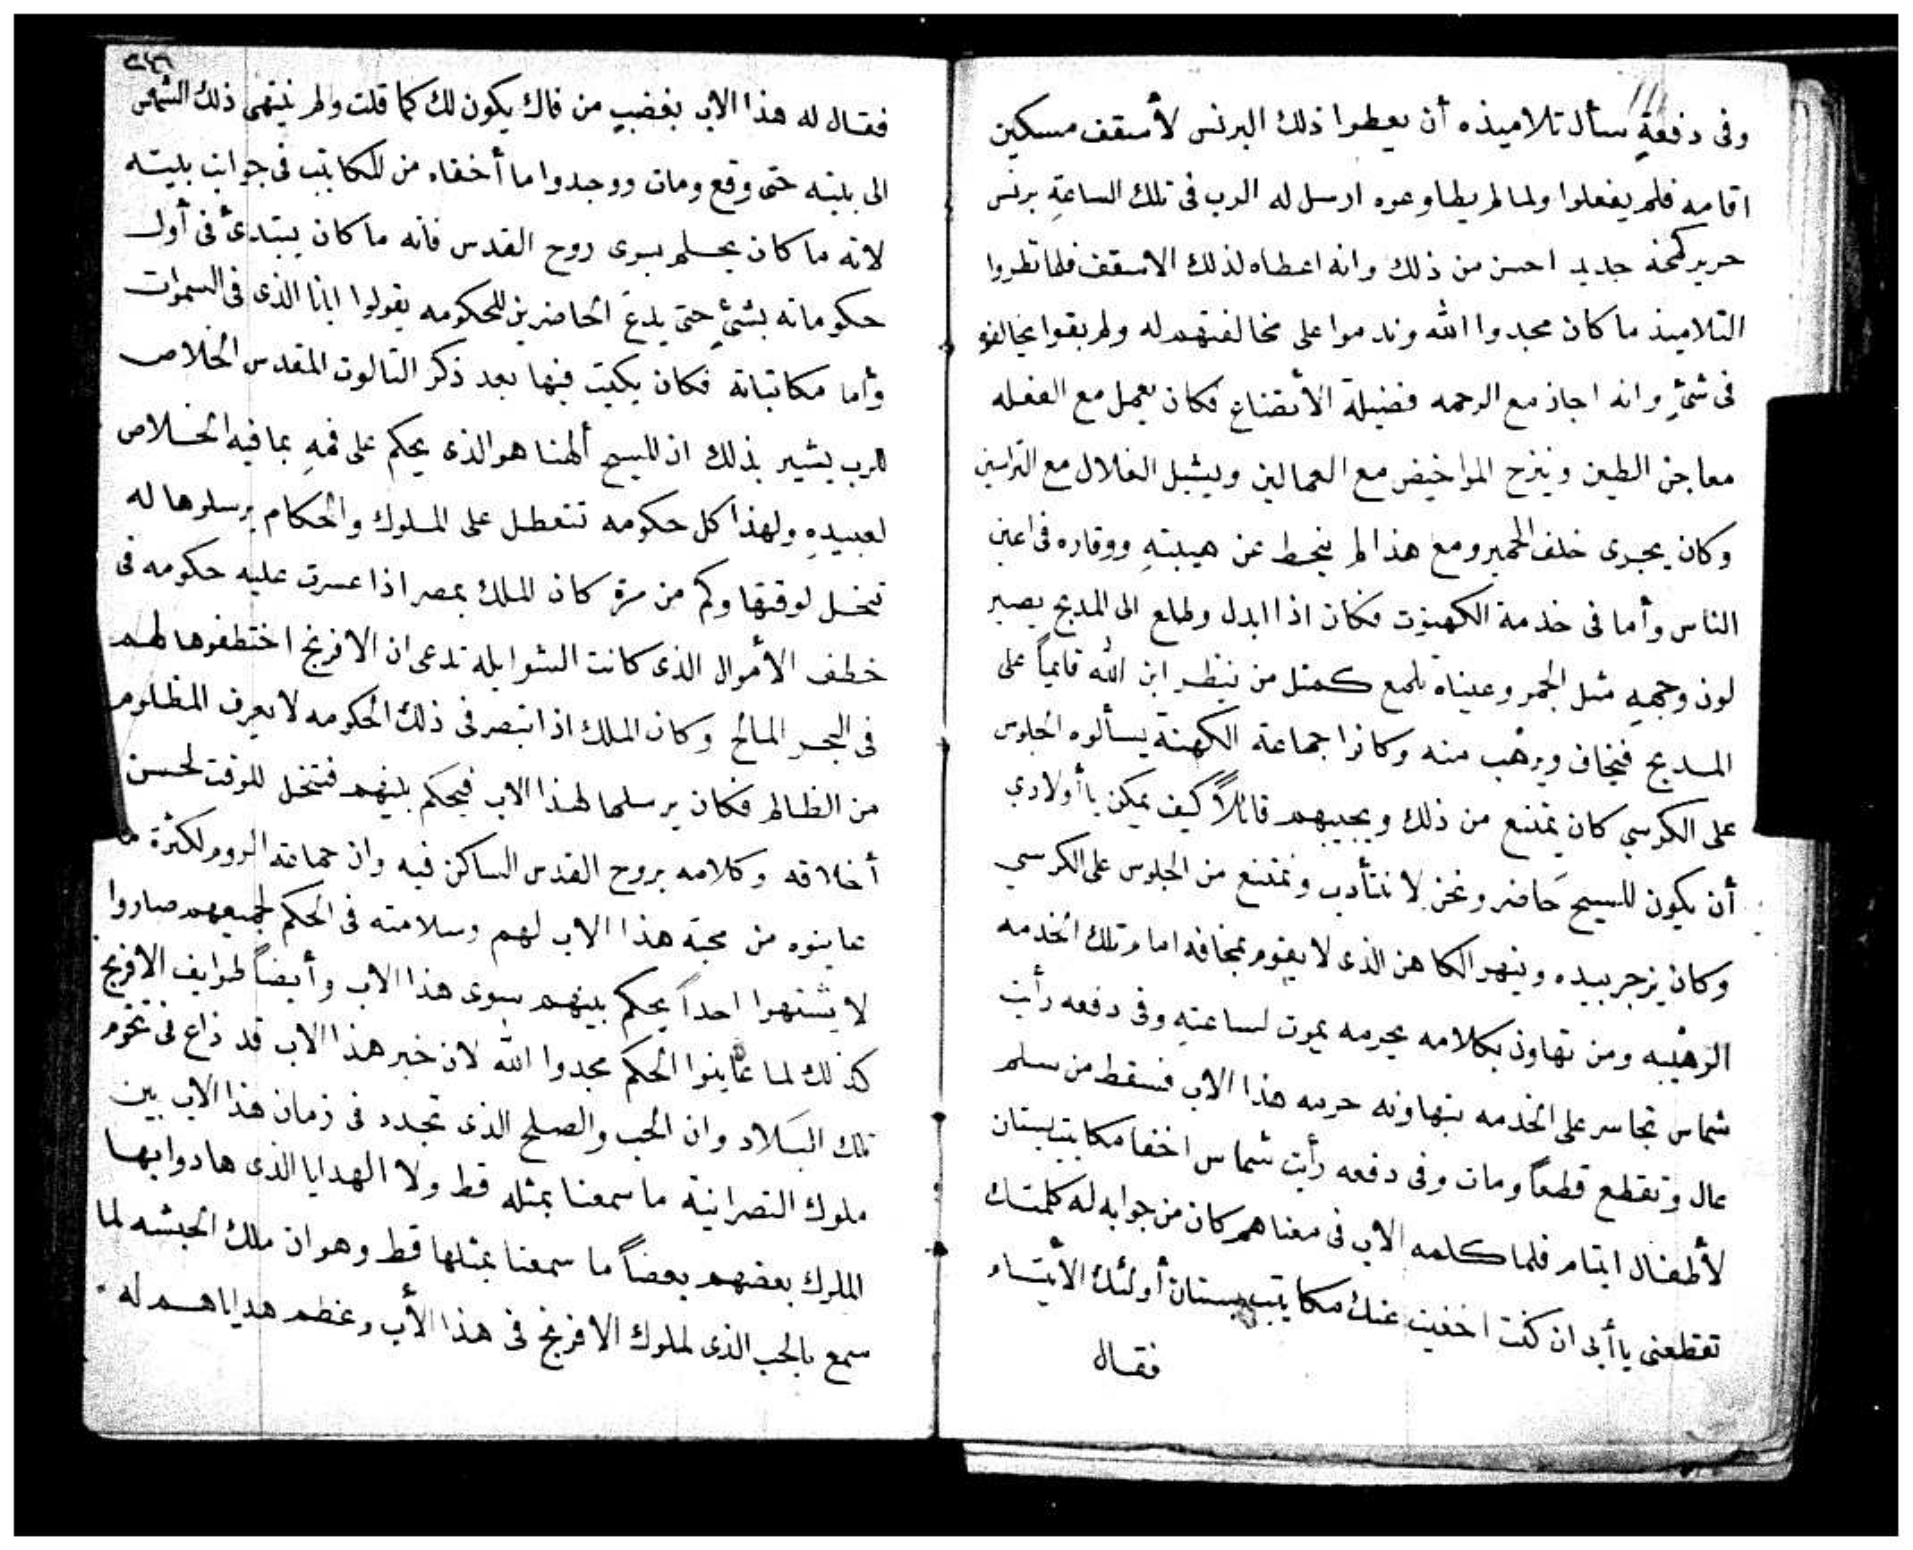 وفى دفعةٍ سأل تلاميذه أن يعطوا ذلك البرنس لأسقف مسكين
اقامه فلم يفعلوا ولما لم يطاوعوه ارسل له الرب فى تلك الساعةِ برنس
حرير كمخة جديد احسن من ذلك وانه اعطاه لذلك الاسقف فلما نظروا
التلاميذ ما كان مجدوا الله وندموا على مخالفتهم له ولم بقوا يخالفو
فى شئٍ وانه اجاز مع الرحمه فضيلة الأتضاع فكان يعمل مع الفعله
معاجن الطين وينزح المواخيض مع العمالين ويشيل الغلال مع التراسين
وكان يجرى خلف الحمير ومع هذا لم ينحط عن هيبتهِ ووقاره فى اعين
الناس وأما فى خدمة الكهنوت فكان اذا ابدل وطلع الى المدبح يصير
لون وجههِ مثل الجمر وعيناه تلمع كمتل من ينظر ابن الله قايماً على
المدبح فيخاف ويرهب منه وكانوا جماعة الكهنة يسألوه الجلوس
على الكرسي كان يمتنع من ذلك ويجيبهم قائلاً كيف يمكن يا أولادي
أن يكون المسيح حَاضر ونحن لا نتأدب ونمتنع من الجلوس على الكرسي
وكان يزجر بيده وينهر الكاهن الذى لا يقوم بمخافه امام تلك الخدمه
الرهيبه ومن تهاون بكلامه يحرمه يموت لساعتهِ وفى دفعه رأيت
شماس تجاسر على الخدمه بتهاونه حرمه هذا الاب فسقط من سلم
عال وتقطع قطعاً ومات وفى دفعه رأيت شماس اخفا مكاتيب بستان
لأطفال ايتام فلما كلمه الاب فى معناهم كان من جوابه له كلمتك
تقطعنى يا أبى ان كنت اخفيت عنك مكاتيب بستان أولئك الأيتام
فقال
٢٤٦
فقال له هذا الاب بغضبٍ من فاك يكون لك كما قلت ولم ينتهى ذلك الشماس
الى بيته حتى وقع ومات ووجدوا ما أخفاه من المكاتيب فى جوانب بيته
لانه ما كان يحكم بسوى روح القدس فانه ما كان يبتدئ فى أول
حكوماته بشئٍ حتى يدع الحاضرين للحكومه يقولوا ابانا الذى فى السموات
وأما مكاتباته فكان يكتب فيها بعد ذكر التالوت المقدس الخلاص
للرب يشير بذلك ان المسيح ألهنا هو الذى يحكم على فمهِ بما فيه الخلاص
لعبيدهِ ولهذا كل حكومه تتعطل على الملوك والحكام يرسلوها له
تنحل لوقتها وكم من مرة كان الملك بمصر اذا عسرت عليه حكومه فى
خطف الأموال الذى كانت الشوابله تدعى ان الافرنج اختطفوها لهم
فى البحر المالح وكان الملك اذا تبصر فى ذلك الحكومه لا يعرف المظلوم
من الظالم فكان يرسلها لهذا الاب فيحكم بينهم فتنحل للوقت لحسن
أخلاقه وكلامه بروح القدس الساكن فيه وان جماعة الروم لكثرة ما
عاينوه من محبة هذا الاب لهم وسلامته فى الحكم لجميعهم صاروا
لا يشتهوا احداً يحكم بينهم سوى هذا الاب وأيضاً طوايف الافرنج
كذلك لما عاينوا الحكم مجدوا الله لان خبر هذا الاب قد ذاع فى تخوم
تلك البَلاد وان الحب والصلح الذى تجدد فى زمان هذا الاب بين
ملوك النصرانية ما سمعنا بمثله قط ولا الهدايا الذى هادوا بها
الملوك بعضهم بعضاً ما سمعنا بمثلها قط وهو ان ملك الحبشه لما
سمع بالحب الذى لملوك الافرنج فى هذا الأب وعظم هداياهم له